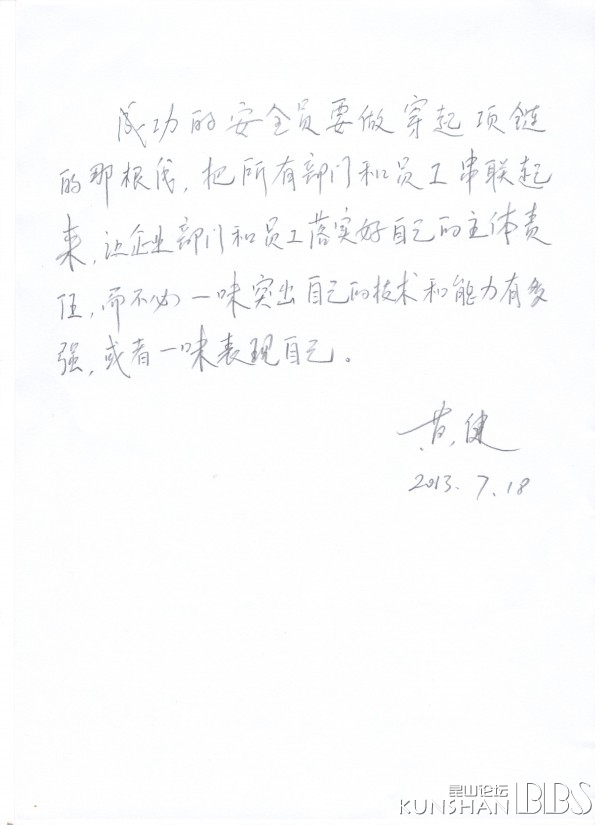 成功的安全员要做穿起项链
的那根线，把所有部门和员工串联起
来，让企业部门和员工落实好自己的主体责
任，而不必一味突出自己的技术和能力有多
强，或者一味表现自己。
黄健
2013.7.18
昆山论坛
KUNSHAN BBS